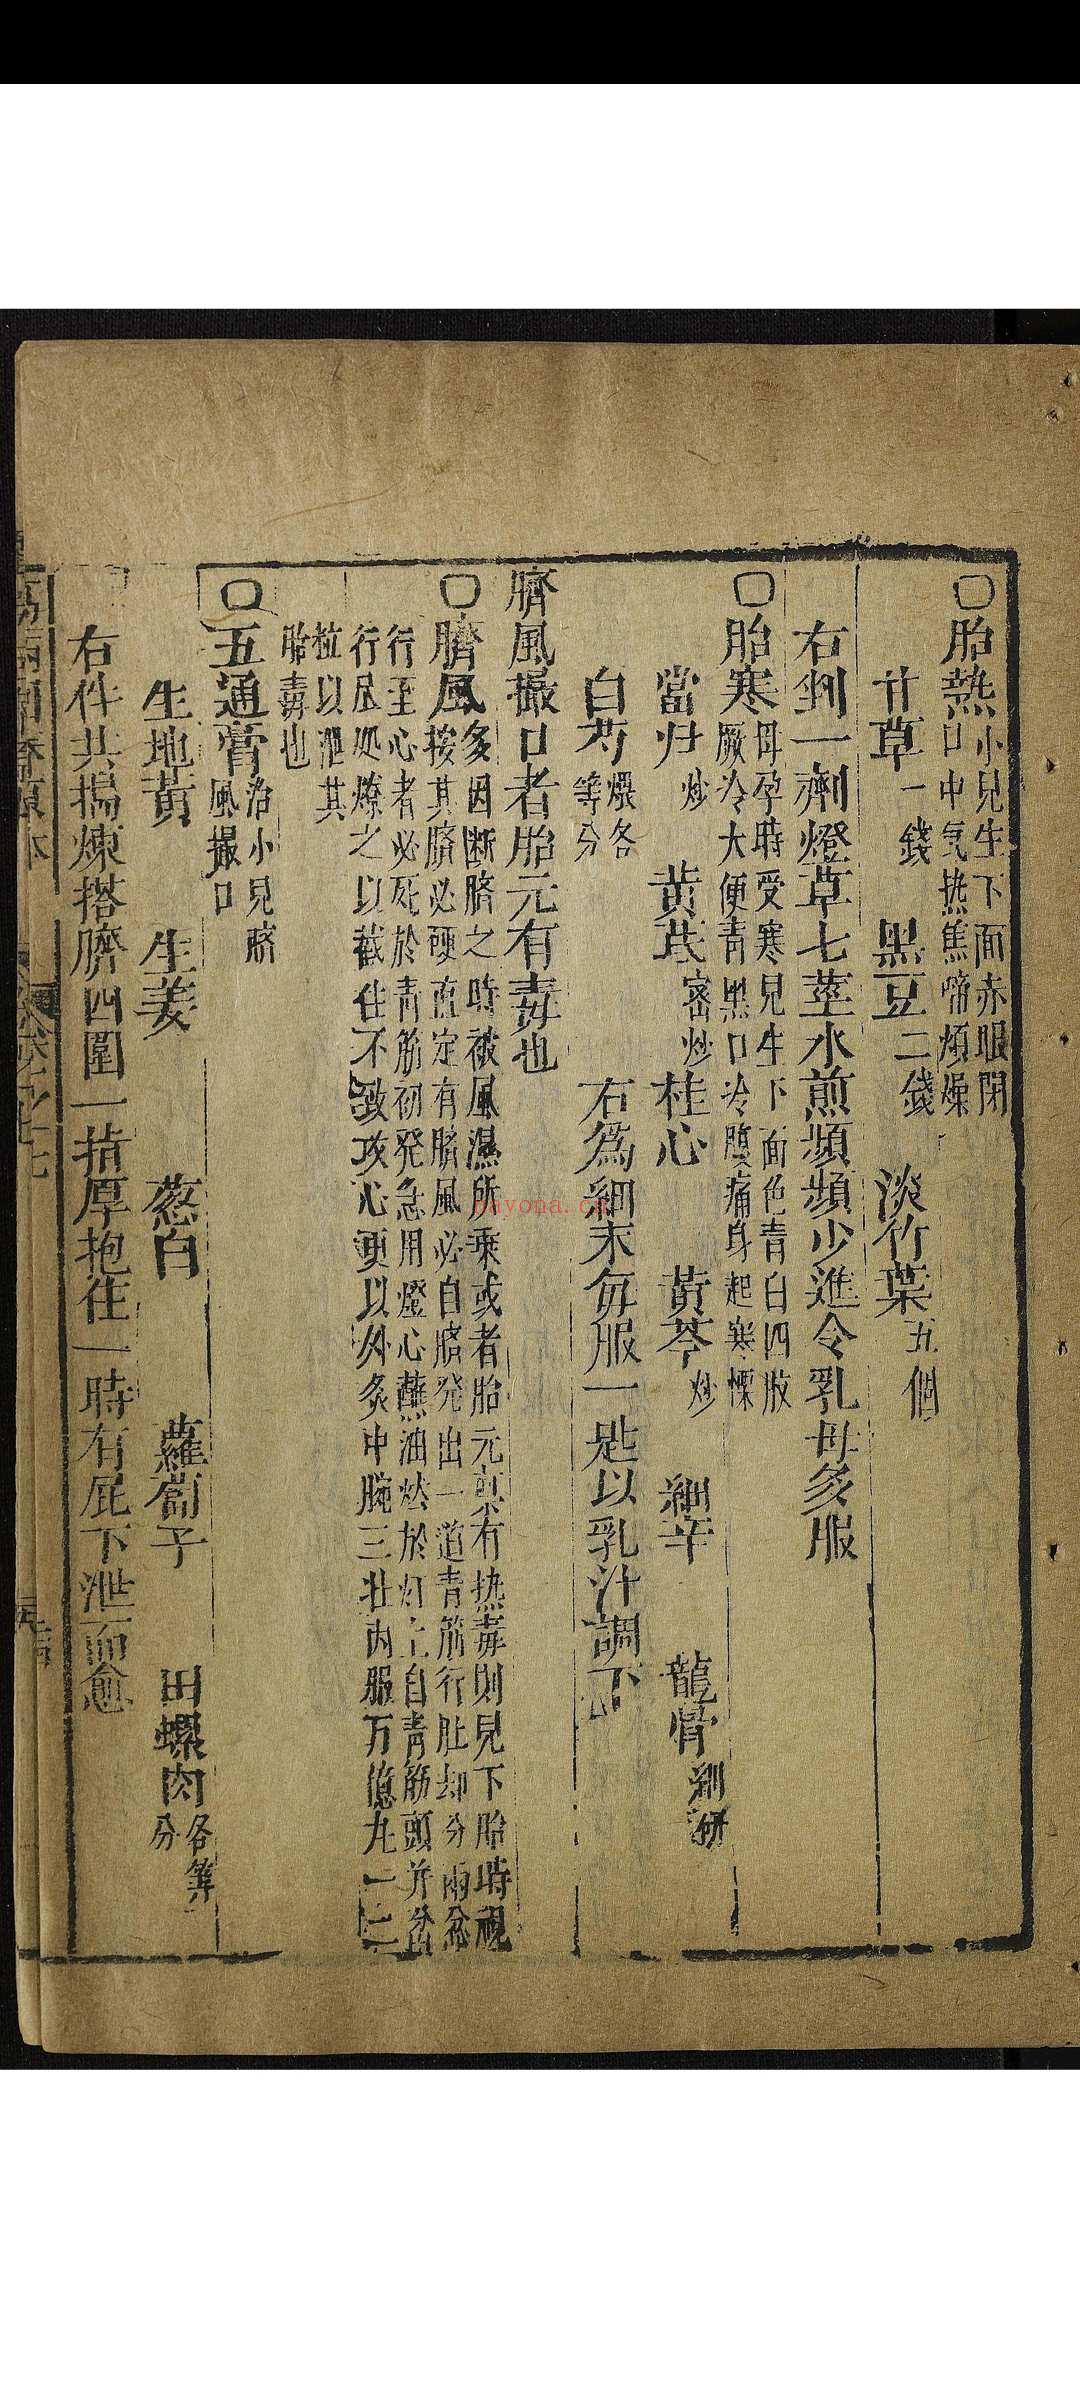 ○胎熱小兒生下面赤眼閉
口中氣热焦啼煩燥
甘草一錢 黑豆二錢 淡竹葉五個
右剉一劑燈草七莖水煎頻頻少進令乳母多服
○胎寒母孕時受寒兒生下面色青白四肢
厥冷大便青黑口冷腹痛身起寒慄
當归炒 黄芪蜜炒 桂心 黄芩炒 細辛 龍骨剉研
白芍煨各等分 右爲細末每服一匙以乳汁調下
臍風撮口者胎元有毒也
○臍風多因断臍之時被風濕所乘或者胎元稟有热毒則見下胎時視
按其臍必硬直定有臍風必自臍発出一道青筋行肚却分兩岔
行至心者必死於青筋初発急用燈心蘸油㸐於灯上自青筋頭并岔
行尽処燎之以截住不致攻心更以外灸中腕三壮内服万億丸一二
粒以泄其
胎毒也
○五通膏治小兒臍
風撮口
生地黃 生姜 葱白 蘿蔔子 田螺肉各等分
右件共搗煉搭臍四圍一指厚抱住一時有屁下泄而愈
卷之七